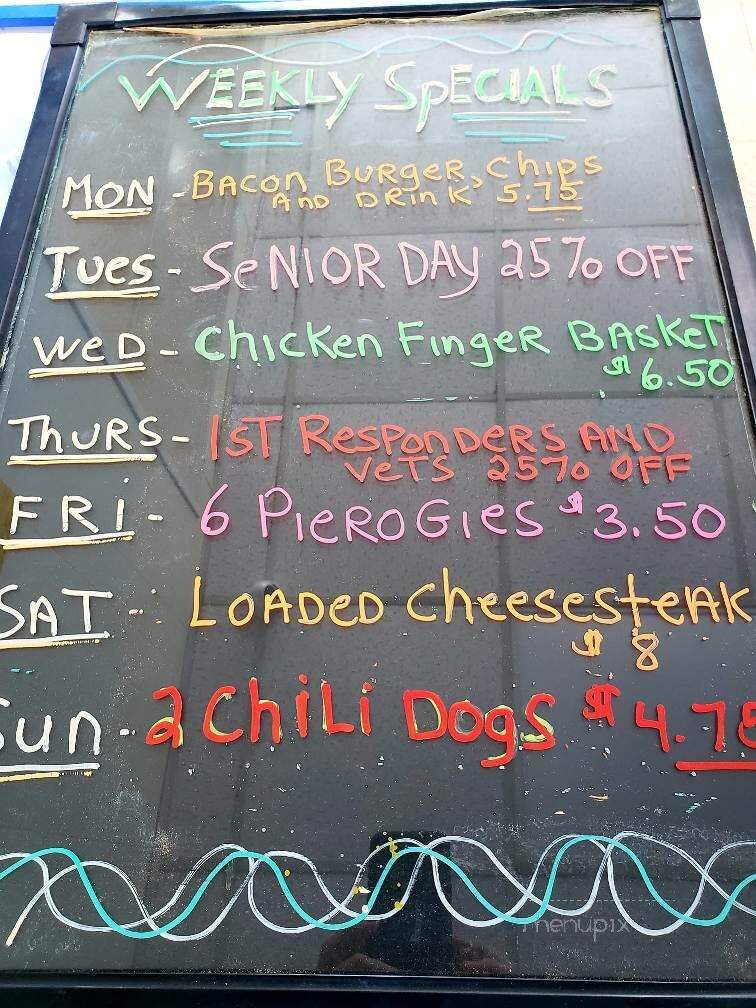 WEEKLY SPECIALS
MON - BACON BURGER, CHIPS
AND DRINK 5.75
TUES - SENIOR DAY 25% OFF
WED - CHICKEN FINGER BASKET
$6.50
THURS - 1ST RESPONDERS AND
VETS 25% OFF
FRI - 6 PIEROGIES $3.50
SAT - LOADED CHEESESTEAK
$8
SUN - 2 CHILI DOGS $4.75
menupix